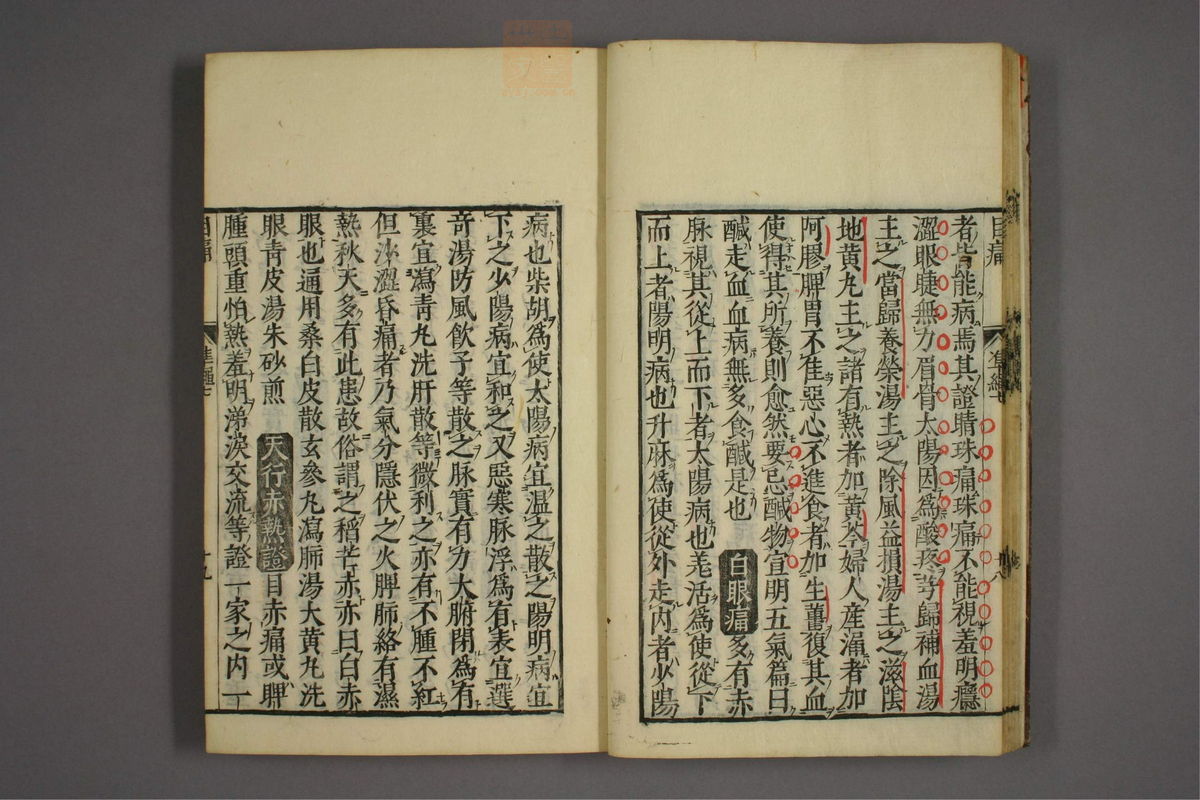 者皆能病焉其證睛珠痛珠痛不能視羞明癮
澀眼睫無力眉骨太陽因爲酸疼芎歸補血湯
主之當歸養榮湯主之除風益損湯主之滋陰
地黃丸主之諸有熱者加黃芩婦人産漏者加
阿膠脾胃不隹惡心不進食者加生薑復其血
使得其所養則愈然要忌醎物宣明五氣篇曰
醎走血血病無多食醎是也 白眼痛 多有赤
脉視其從上而下者太陽病也羌活爲使從下
而上者陽明病也升麻爲使從外走內者少陽
病也柴胡爲使太陽病宜温之散之陽明病宜
下之少陽病宜和之又惡寒脉浮爲有表宜選
竒湯防風飲子等散之脉實有力大腑閉爲有
裏宜瀉青丸洗肝散等微利之亦有不腫不紅
但沙澀昏痛者乃氣分隱伏之火脾肺絡有濕
熱秋天多有此患故俗謂之稻芒赤亦曰白赤
眼也通用桑白皮散玄參丸瀉肺湯大黃丸洗
眼青皮湯朱砂煎 天行赤熱證 目赤痛或脾
腫頭重怕熱羞明涕淚交流等證一家之內一
目痛
十九